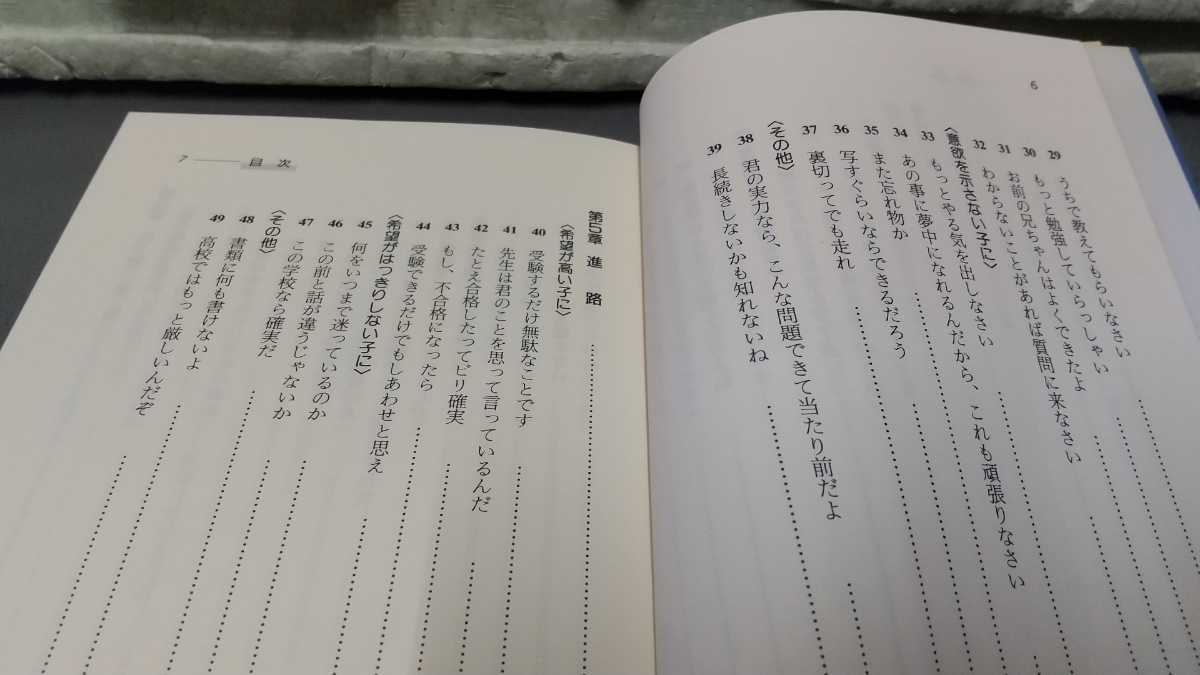 6
29 うちで教えてもらいなさい
30 もっと勉強していらっしゃい
31 お前の兄ちゃんはよくできたよ
32 わからないことがあれば質問に来なさい
〈意欲を示さない子に〉
33 もっとやる気を出しなさい
34 あの事に夢中になれるんだから、これも頑張りなさい
35 また忘れ物か
36 写すぐらいならできるだろう
37 裏切ってでも走れ
〈その他〉
38 君の実力なら、こんな問題できて当たり前だよ
39 長続きしないかも知れないね
7 目次
第5章 進路
〈希望が高い子に〉
40 受験するだけ無駄なことです
41 先生は君のことを思って言っているんだ
42 たとえ合格したってビリ確実
43 もし、不合格になったら
44 受験できるだけでもしあわせと思え
〈希望がはっきりしない子に〉
45 何をいつまで迷っているのか
46 この前と話が違うじゃないか
47 この学校なら確実だ
〈その他〉
48 書類に何も書けないよ
49 高校ではもっと厳しいんだぞ